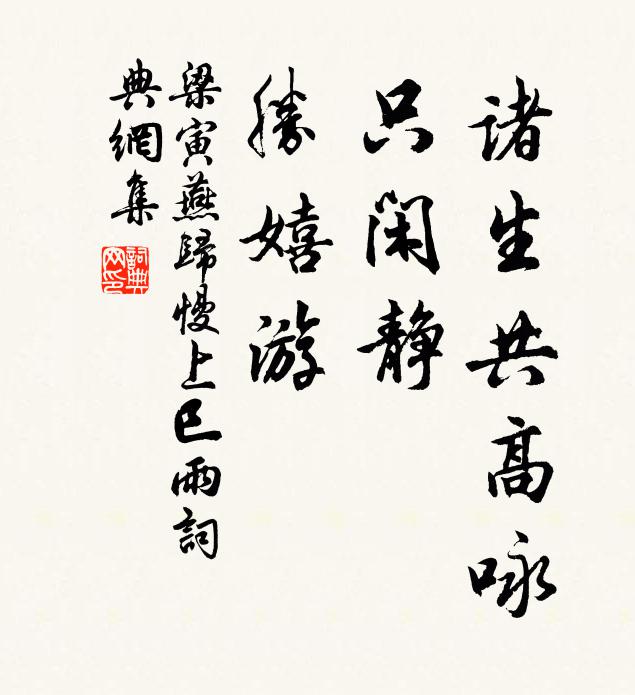 諸生共高咏
只閑静
勝嬉游
梁寅燕歸慢上巳雨詞
典網集
詞典網印